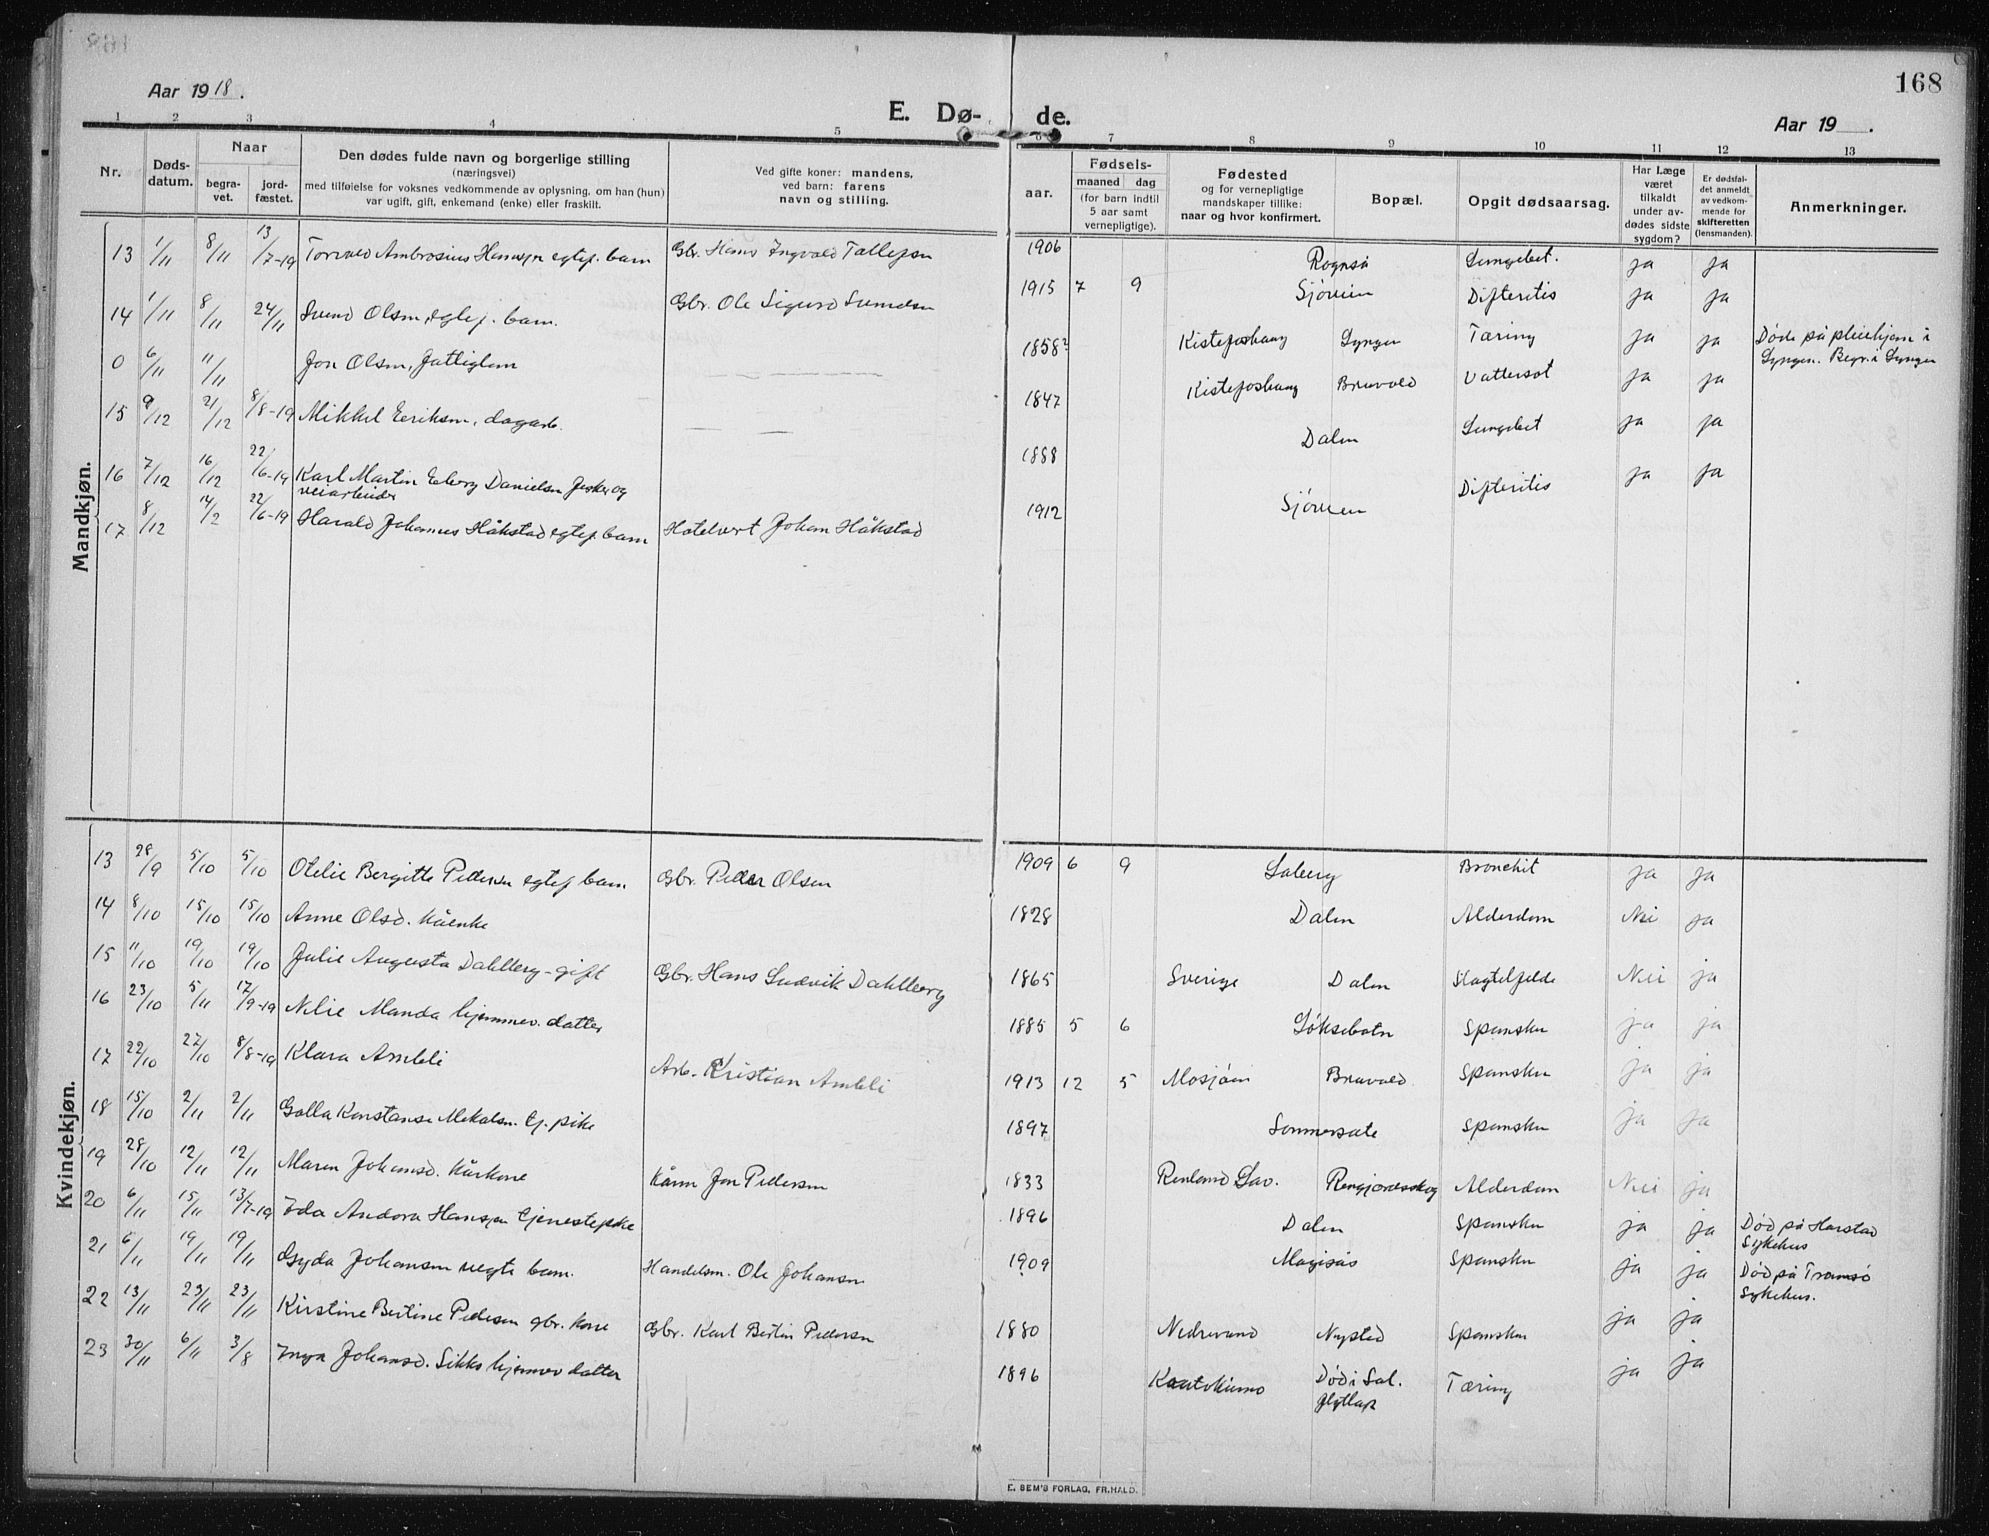 168
Aar 1918.
E. Dø- de.
Aar 19 .
1 2 3 4 5 6 7 8 9 10 11 12 13
Nr.
Døds-
datum.
Naar
begra-
vet.
jord-
fæstet.
Den dødes fulde navn og borgerlige stilling
(næringsvei)
med tilføielse for voksnes vedkommende av oplysning, om han (hun)
var ugift, gift, enkemand (enke) eller fraskilt.
Ved gifte koner: mandens,
ved barn: farens
navn og stilling.
aar.
Fødsels-
maaned dag
(for barn indtil
5 aar samt
vernepligtige).
Fødested
og for vernepligtige
mandskaper tillike:
naar og hvor konfirmert.
Bopæl.
Opgit dødsaarsag.
Har Læge
været
tilkaldt
under av-
dødes sidste
sygdom?
Er dødsfal-
det anmeldt
av vedkom-
mende for
skifteretten
(lensmanden).
Anmerkninger.
Mandkjøn.
13 1/11 8/11 13/7-19 Torvald Ambrosius Hansen egtef. barn Gbr. Hans Ingvald Tollefsen 1906 Rognså Lungebet. ja ja
14 1/11 8/11 24/11 Svend Olsen, egtef. barn. Gbr. Ole Sigurd Svendsen 1915 7 9 Sjøveien Difteritis ja ja
0 6/11 11/11 Jon Olsen, Fattiglem 1858? Kistefoshaug Lyngen Tæring ja ja Døde på pleiehjem i
Lyngen. Begr. i Lyngen
15 9/12 21/12 8/8-19 Mikkel Eriksen, dagarb. 1847 Kistefoshaug Bruvold Vattersot ja ja
16 7/12 16/12 22/6-19 Karl Martin Edberg Danielsen fisker og
veiarbeider 1888 Dalen Lungebet ja ja
17 8/12 14/2 22/6-19 Harald Johannes Håkstad egtef. barn Hotelvert Johan Håkstad 1912 Sjøveien Difteritis ja ja
Kvindekjøn.
13 28/9 5/10 5/10 Otelie Bergitte Pedersen egtef barn Gbr. Peder Olsen 1909 6 9 Laberg Bronchit ja ja
14 8/10 15/10 15/10 Anne Olsd. kåenke 1828 Dalen Alderdom Nei ja
15 11/10 19/10 19/10 Julie Augusta Dahlberg - gift Gbr. Hans Ludvik Dahlberg 1865 Sverige Dalen Slagtelfælde Nei ja
16 23/10 5/11 17/9-19 Nelie Manda hjemmev. datter 1885 5 6 Løksebotn Spansken ja ja
17 22/10 27/10 8/8-19 Klara Ambli Arb. Kristian Ambli 1913 12 5 Mosjøen Bruvold Spansken ja ja
18 15/10 2/11 2/11 Golla Konstanse Mikalsen. tj. pike 1897 Sommersæte Spansken ja ja
19 28/10 12/11 12/11 Maren Johansd. kårkone Kårm Jon Pedersen 1833 Renland Lav. Rengjordsskog Alderdom Nei ja
20 6/11 15/11 13/7-19 Ida Andora Hansen tjenestepike 1896 Dalen Spansken ja ja Død på Harstad
Sykehus
21 6/11 19/11 19/11 Gyda Johansen uegte barn. Handelsm. Ole Johansen 1909 Spansken ja ja Død på Tromsø
Sykehus.
22 13/11 23/11 23/11 Kirstine Bertine Pedersen gbr. kone Gbr. Karl Bertin Pedersen 1880 Nedrevand Nysted Spansken ja ja
23 30/11 6/11 3/8 Inga Johansd. Sikku hjemmev datter 1896 Kautokeino Død i Sal.
Tæring ja ja
E. SEM'S FORLAG, FR.HALD.